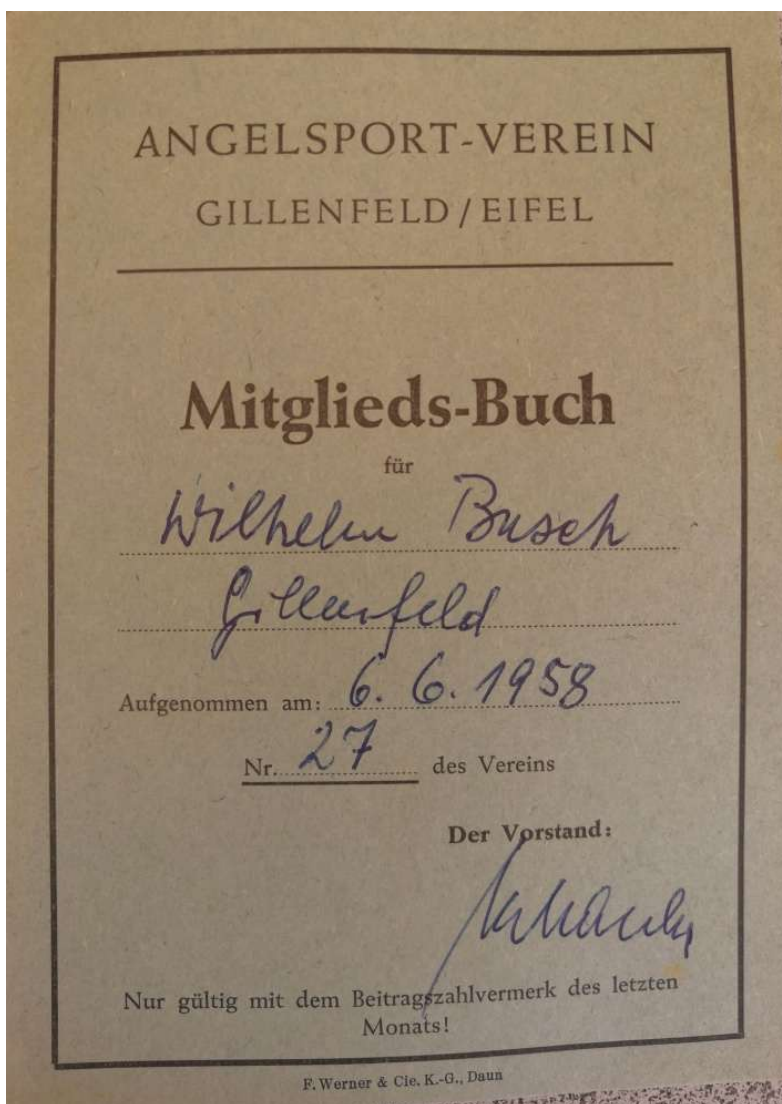 ANGELSPORT-VEREIN
GILLENFELD/EIFEL
Mitglieds-Buch
für
Wilhelm Busch
Gillenfeld
Aufgenommen am: 6. 6. 1958
Nr. 27 des Vereins
Der Vorstand:
Nur gültig mit dem Beitragszahlvermerk des letzten
Monats!
F. Werner & Cie. K.-G., Daun